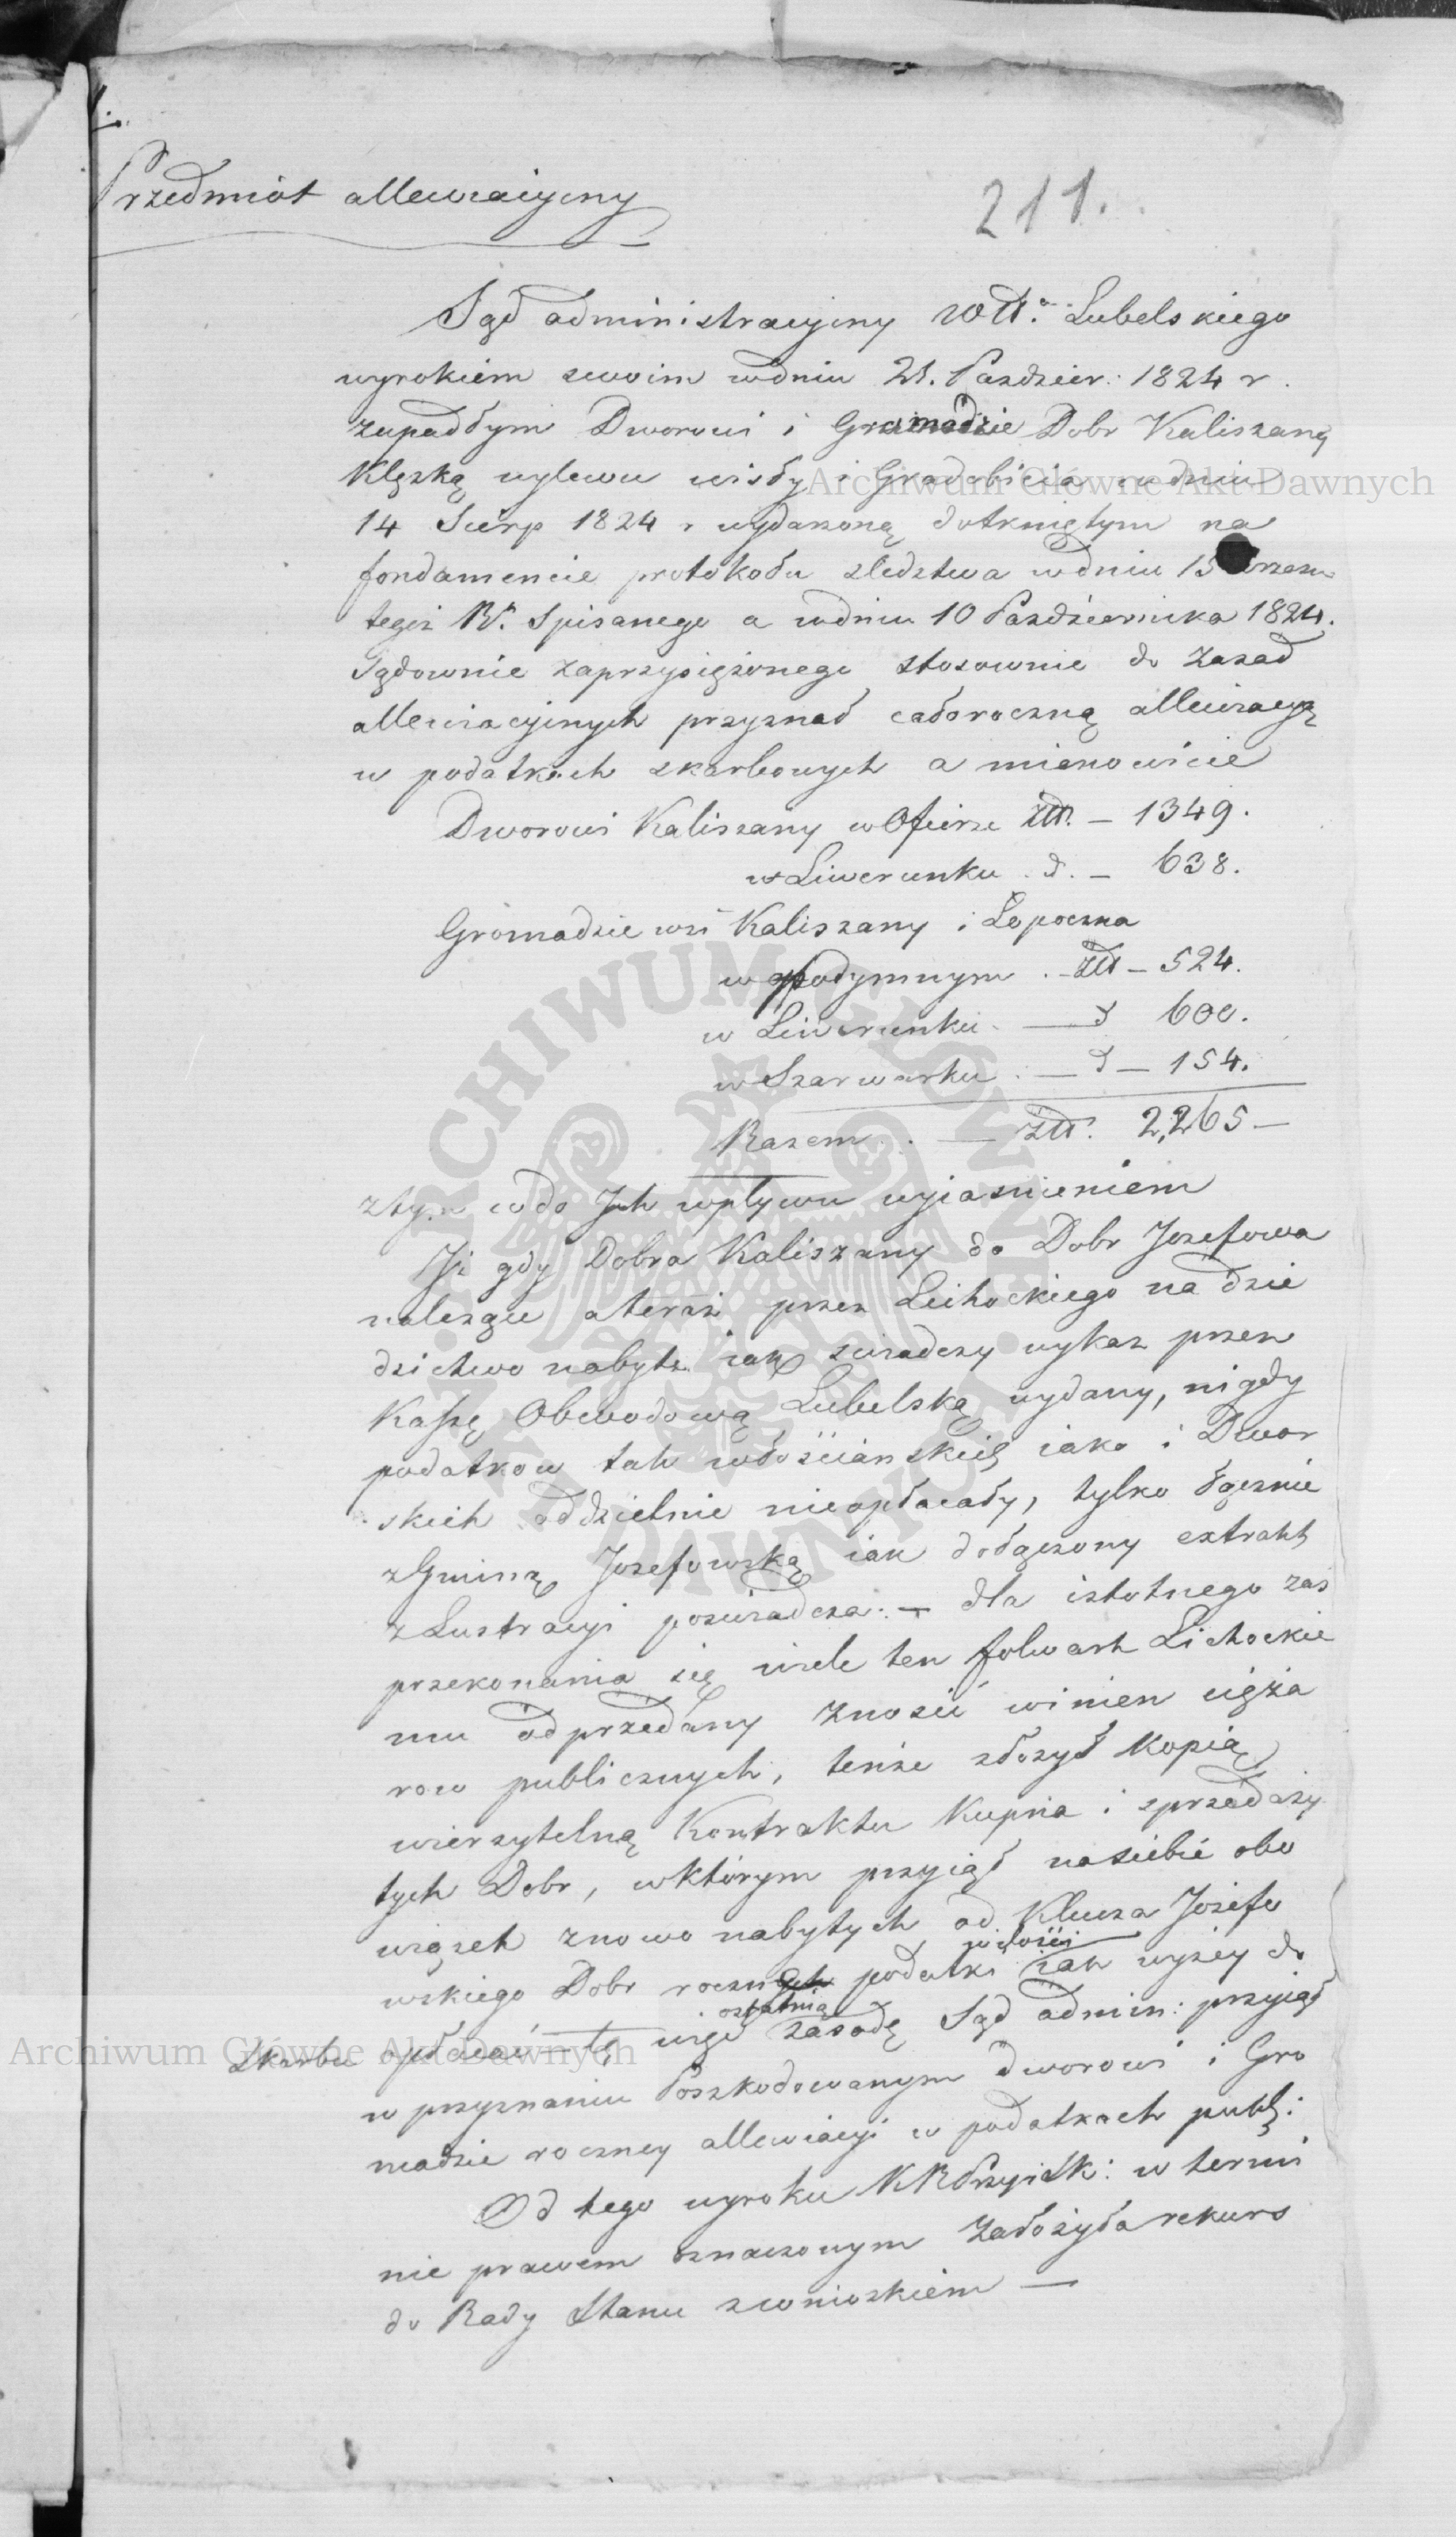 Przedmiot allewiacyiny
211.
Sąd administracyiny Wdt. Lubelskiego
wyrokiem swoim w dniu 21. Pazdzier: 1824 r.
zapadłym Dworowi i Gromadzie Dobr Kaliszany
Klęską wylewu wisły i Gradobicia w dniu
14 Sierp 1824 r wydarzoną dotkniętym na
fondamencie protokołu sledztwa w dniu 15
tegoż R. Spisanego a w dniu 10 Pazdziernika 1824.
Sądownie zaprzysiężonego stosownie do Zasad
allewiacyinych przyznał całoroczną allewiacyą
w podatkach skarbowych a mianowicie
Dworowi Kaliszany w Ofierze Złt. — 1349.
w Liwerunku . d. — 638.
Gromadzie wsi Kaliszany i Łopoczna
w podymnym . — Złt — 524.
w Liwerunku . — d 600.
w Szarwarku : — d — 154.
Razem . . — złt. 2,265 —
z tym co do Ich wpływu wyiasnieniem
Iż gdy Dobra Kaliszany do Dobr Jozefowa
należące a teraz przez Leihockiego na dzie
dzictwo nabyte iak swiadczy wykaz przez
Kassę Obwodową Lubelską wydany, nigdy
podatkow tak włościanskich iako i Dwor
skich oddzielnie nieopłacały, tylko łącznie
z Gminą Jozefowską iak dołączony extrakt
z Lustracyi poswiadcza: — dla istotnego zas
przekonania się wiele ten folwark Lichockie
mu odprzedany znosić winien cięża
row publicznych, tenże złożył Kopią
wierzytelną Kontraktu Kupna i sprzedaży
tych Dobr, w którym przyiął na siebie obo
wiązek z nowo nabytych od Klucza Józefo
wskiego Dobr roczne podatki iak wyżey do
w ilości
Skarbu opłacać — tę więc zasadę Sąd admin: przyiął
ostatnią
w przyznaniu Poszkodowanym Dworowi i Gro
madzie roczney allewiacyi w podatkach publ:
Od tego wyroku KRPrzyiSk: w termi
nie prawem oznaczonym założyła rekurs
do Rady Stanu z wnioskiem —
Archiwum Główne Akt Dawnych
Archiwum Główne Akt Dawnych
ARCHIWUM GŁÓWNE AKT DAWNYCH